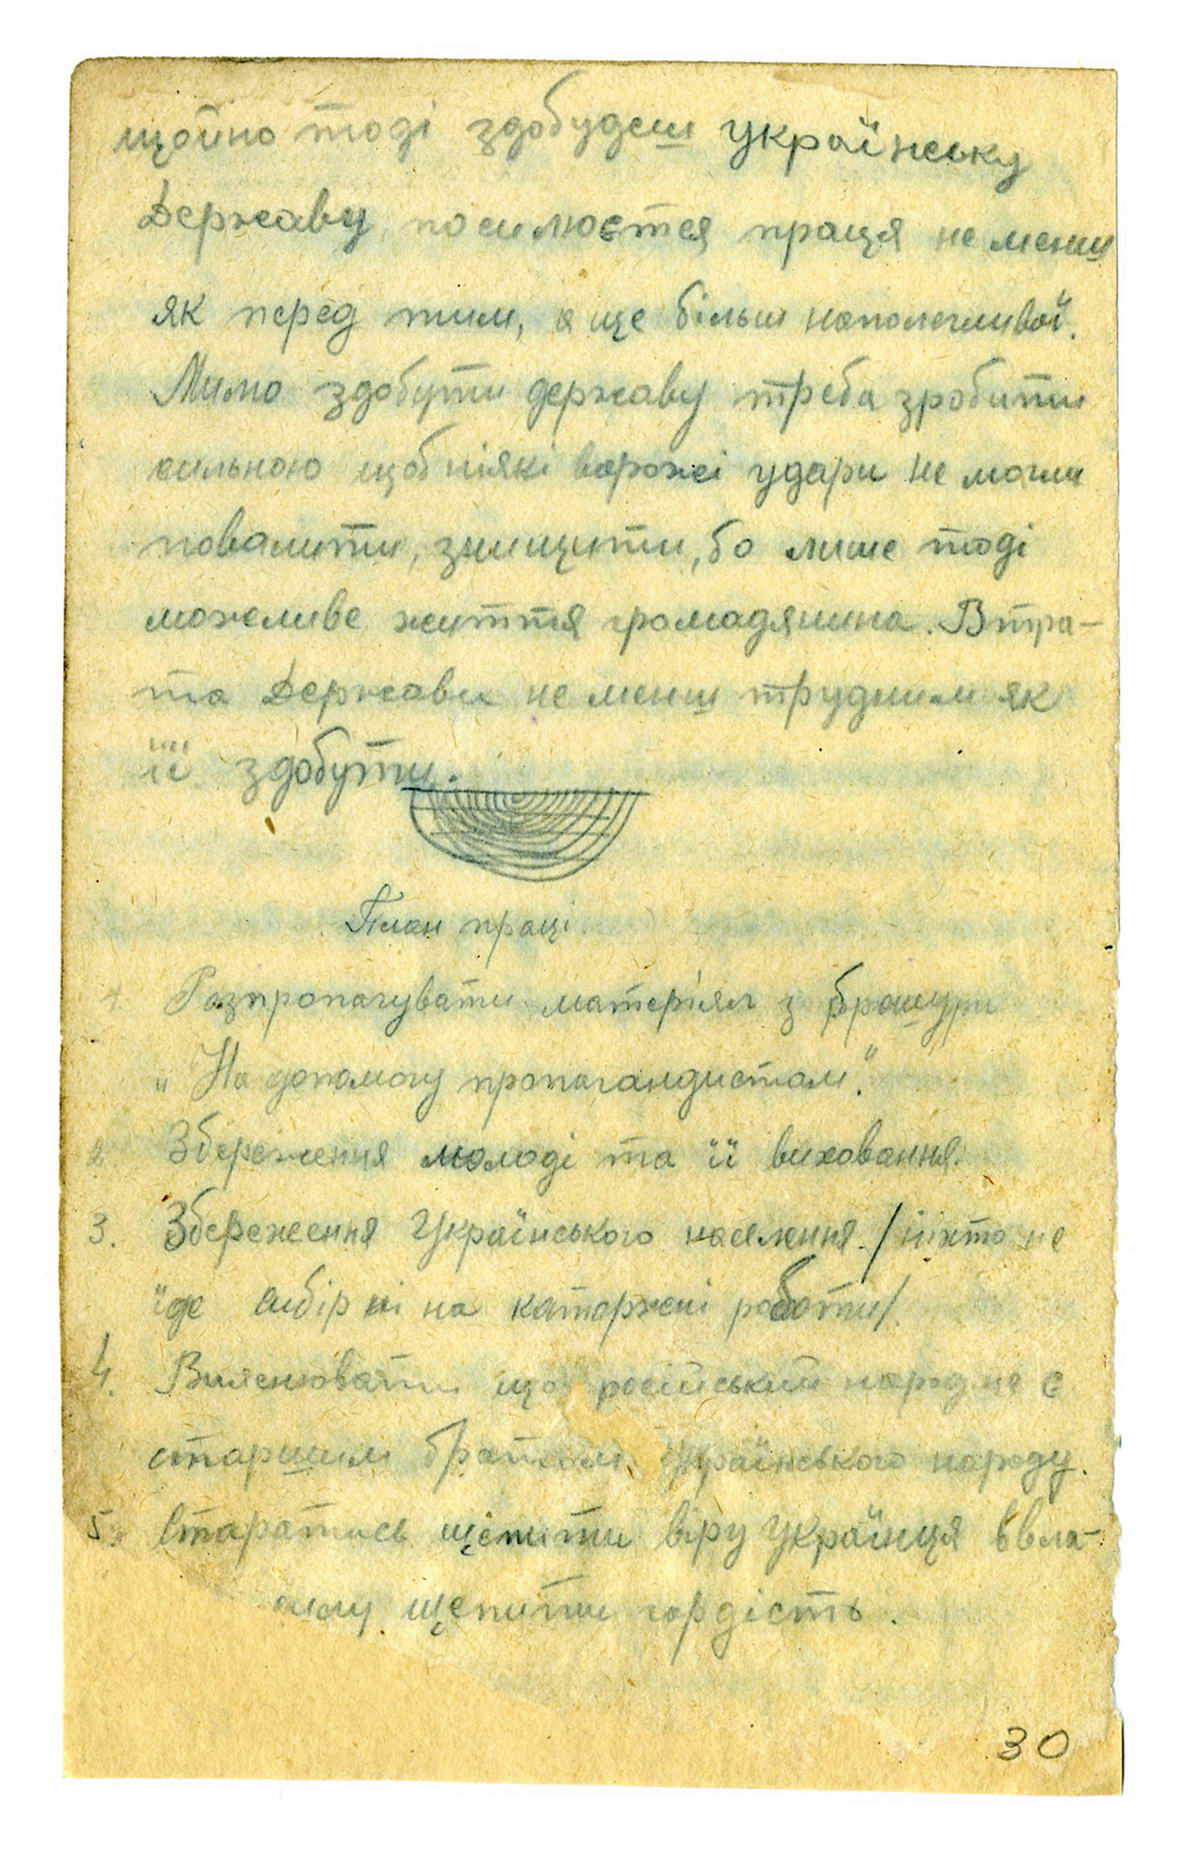 щойно тоді здобудеш Українську
Державу, посилюєтся праця не менш
як перед тим, а ще більш наполегливої.
Мимо здобути державу треба зробити
сильною щоб ніякі ворожі удари не могли
повалити, знищити, бо лише тоді
можливе життя громадянина. Втра-
та Держави не менш трудним як
її здобути.
План праці
1. Розпропагувати матеріял з брошури
„На допомогу пропагандистам".
2 Збереження молоді та її виховання.
3. Збереження Українського населення. /ніхто не
їде сибір ні на каторжні роботи/.
4. Вияснювати що російський народ не є
старшим братом Українського народу.
5. Старатись щепити віру Українця в вла-
силу щепити гордість.
30